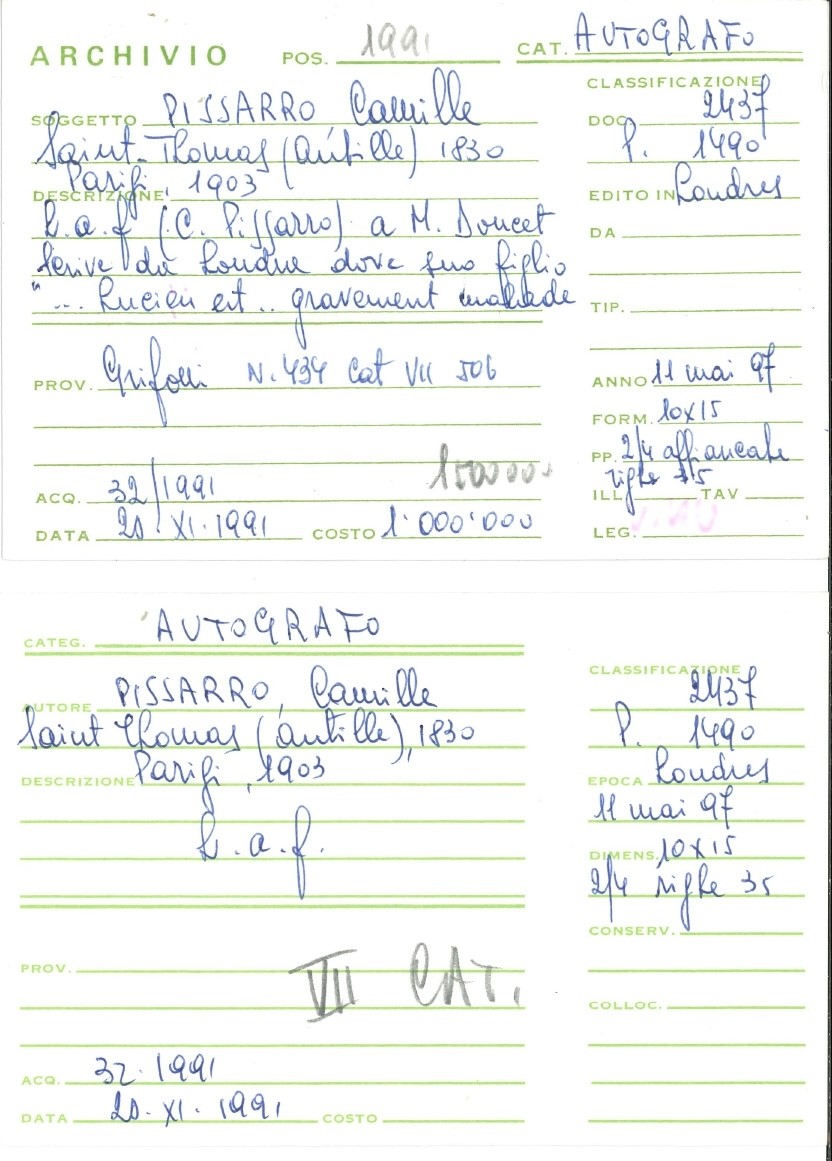 ARCHIVIO POS. 1991 CAT. AUTOGRAFO
CLASSIFICAZIONE
SOGGETTO PISSARRO Camille
DOC. 2437
Saint-Thomas (Antille) 1830
P. 1490
Parigi, 1903
DESCRIZIONE
EDITO IN Londres
L.a.f (C. Pissarro) a M. Doucet
DA
scrive da Londra dove suo figlio
"... Lucien est .. gravement malade
TIP.
PROV. N. 434 Cat VII 506
ANNO 11 mai 97
FORM. 10x15
1500000
PP. 2/4 affiancate
righe 35
ACQ. 32/1991
ILL. TAV
DATA 20.XI.1991 COSTO 1'000'000
LEG.
CATEG. AUTOGRAFO
CLASSIFICAZIONE
AUTORE PISSARRO, Camille
2437
Saint Thomas (Antille), 1830
P. 1490
DESCRIZIONE Parigi, 1903
EPOCA Londres
11 mai 97
L.a.f.
DIMENS. 10x15
2/4 righe 35
CONSERV.
PROV.
VII CAT.
COLLOC.
ACQ. 32.1991
DATA 20.XI.1991 COSTO